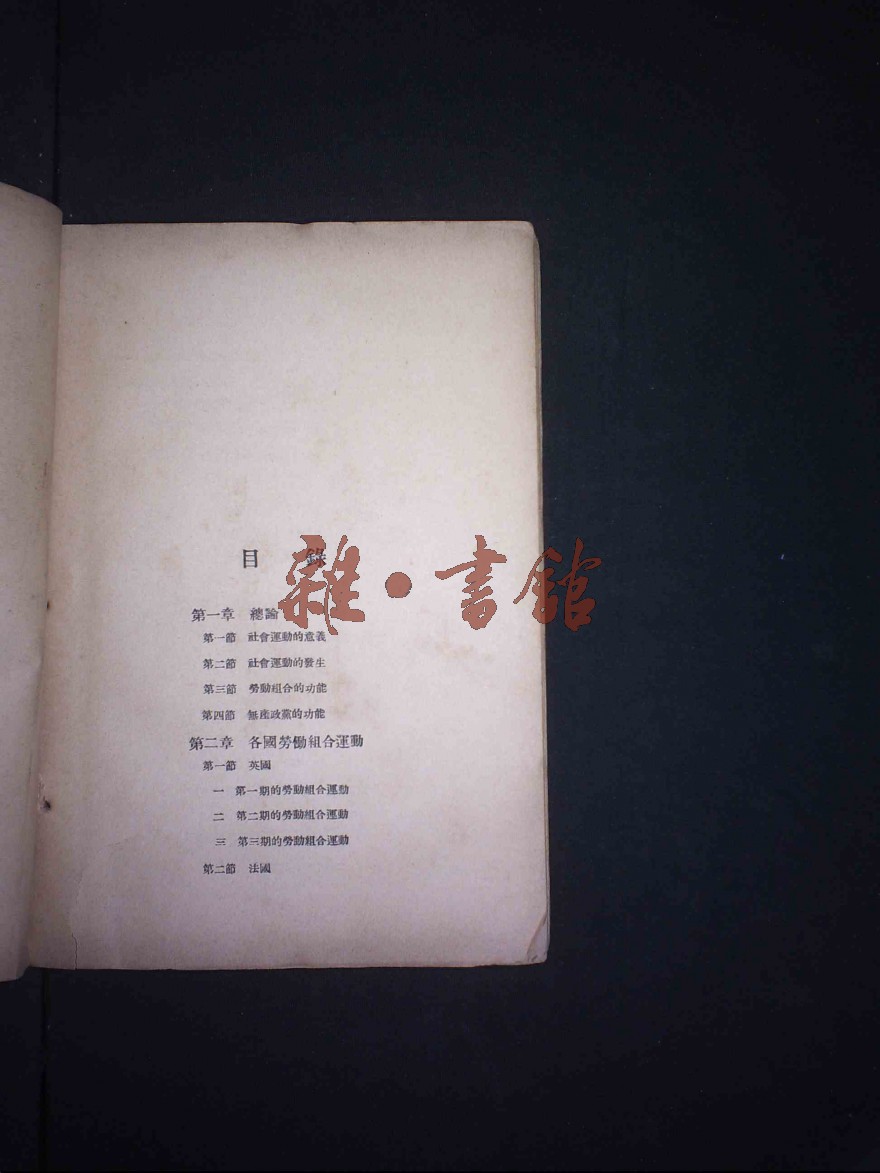 目錄
雜·書館
第一章 總論
第一節 社會運動的意義
第二節 社會運動的發生
第三節 勞動組合的功能
第四節 無產政黨的功能
第二章 各國勞働組合運動
第一節 英國
一 第一期的勞動組合運動
二 第二期的勞動組合運動
三 第三期的勞動組合運動
第二節 法國